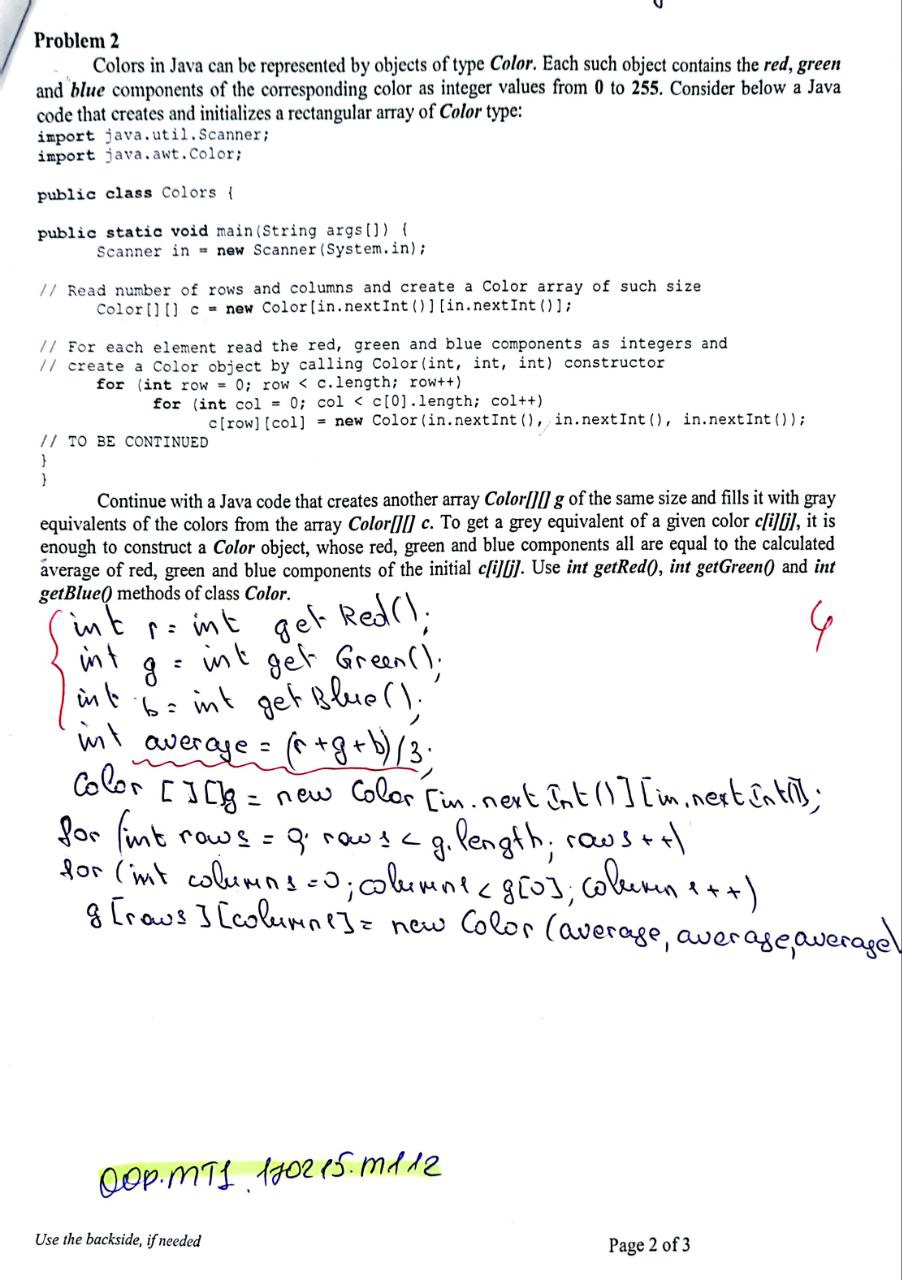 Problem 2
Colors in Java can be represented by objects of type Color. Each such object contains the red, green
and blue components of the corresponding color as integer values from 0 to 255. Consider below a Java
code that creates and initializes a rectangular array of Color type:
import java.util.Scanner;
import java.awt.Color;
public class Colors {
public static void main(String args[]) {
Scanner in = new Scanner(System.in);
// Read number of rows and columns and create a Color array of such size
Color[][] c = new Color[in.nextInt()][in.nextInt()];
// For each element read the red, green and blue components as integers and
// create a Color object by calling Color(int, int, int) constructor
for (int row = 0; row < c.length; row++)
for (int col = 0; col < c[0].length; col++)
c[row][col] = new Color(in.nextInt(), in.nextInt(), in.nextInt());
// TO BE CONTINUED
}
}
Continue with a Java code that creates another array Color[][] g of the same size and fills it with gray
equivalents of the colors from the array Color[][] c. To get a grey equivalent of a given color c[i][j], it is
enough to construct a Color object, whose red, green and blue components all are equal to the calculated
average of red, green and blue components of the initial c[i][j]. Use int getRed(), int getGreen() and int
getBlue() methods of class Color.
int r = int get Red();
int g = int get Green();
int b = int get Blue();
int average = (r+g+b)/3;
Color [][]g = new Color [in.nextInt()][in.nextInt()];
for (int rows = 0; rows < g.length; rows++)
for (int columns =0; columns < g[0]; columns++)
g[rows][columns] = new Color (average, average, average)
OOP.MT1.170215.M112
Use the backside, if needed
Page 2 of 3